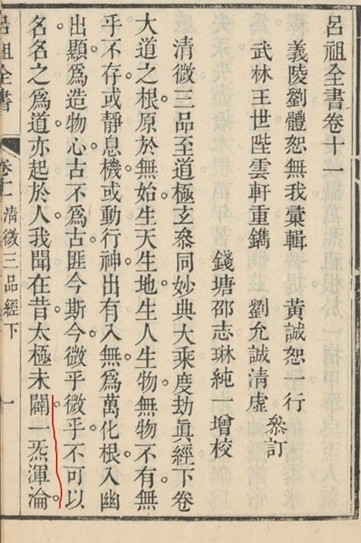 呂祖全書卷十一
義陵劉體恕無我彙輯
黃誠恕一行
武林王世陛雲軒重鐫
劉允誠清虛
叅訂
錢塘邵志琳純一增校
清微三品至道極玄叅同妙典大乘度劫眞經下卷
大道之根原於無始生天生地生人生物無物不有無
乎不存或靜息機或動行神出有入無爲萬化根入幽
出顯爲造物心古不爲古匪今斯今微乎微乎不可以
名名之爲道亦起於人我聞在昔太極未闢一炁渾淪
呂祖全書
卷十一
清微三品經下
一